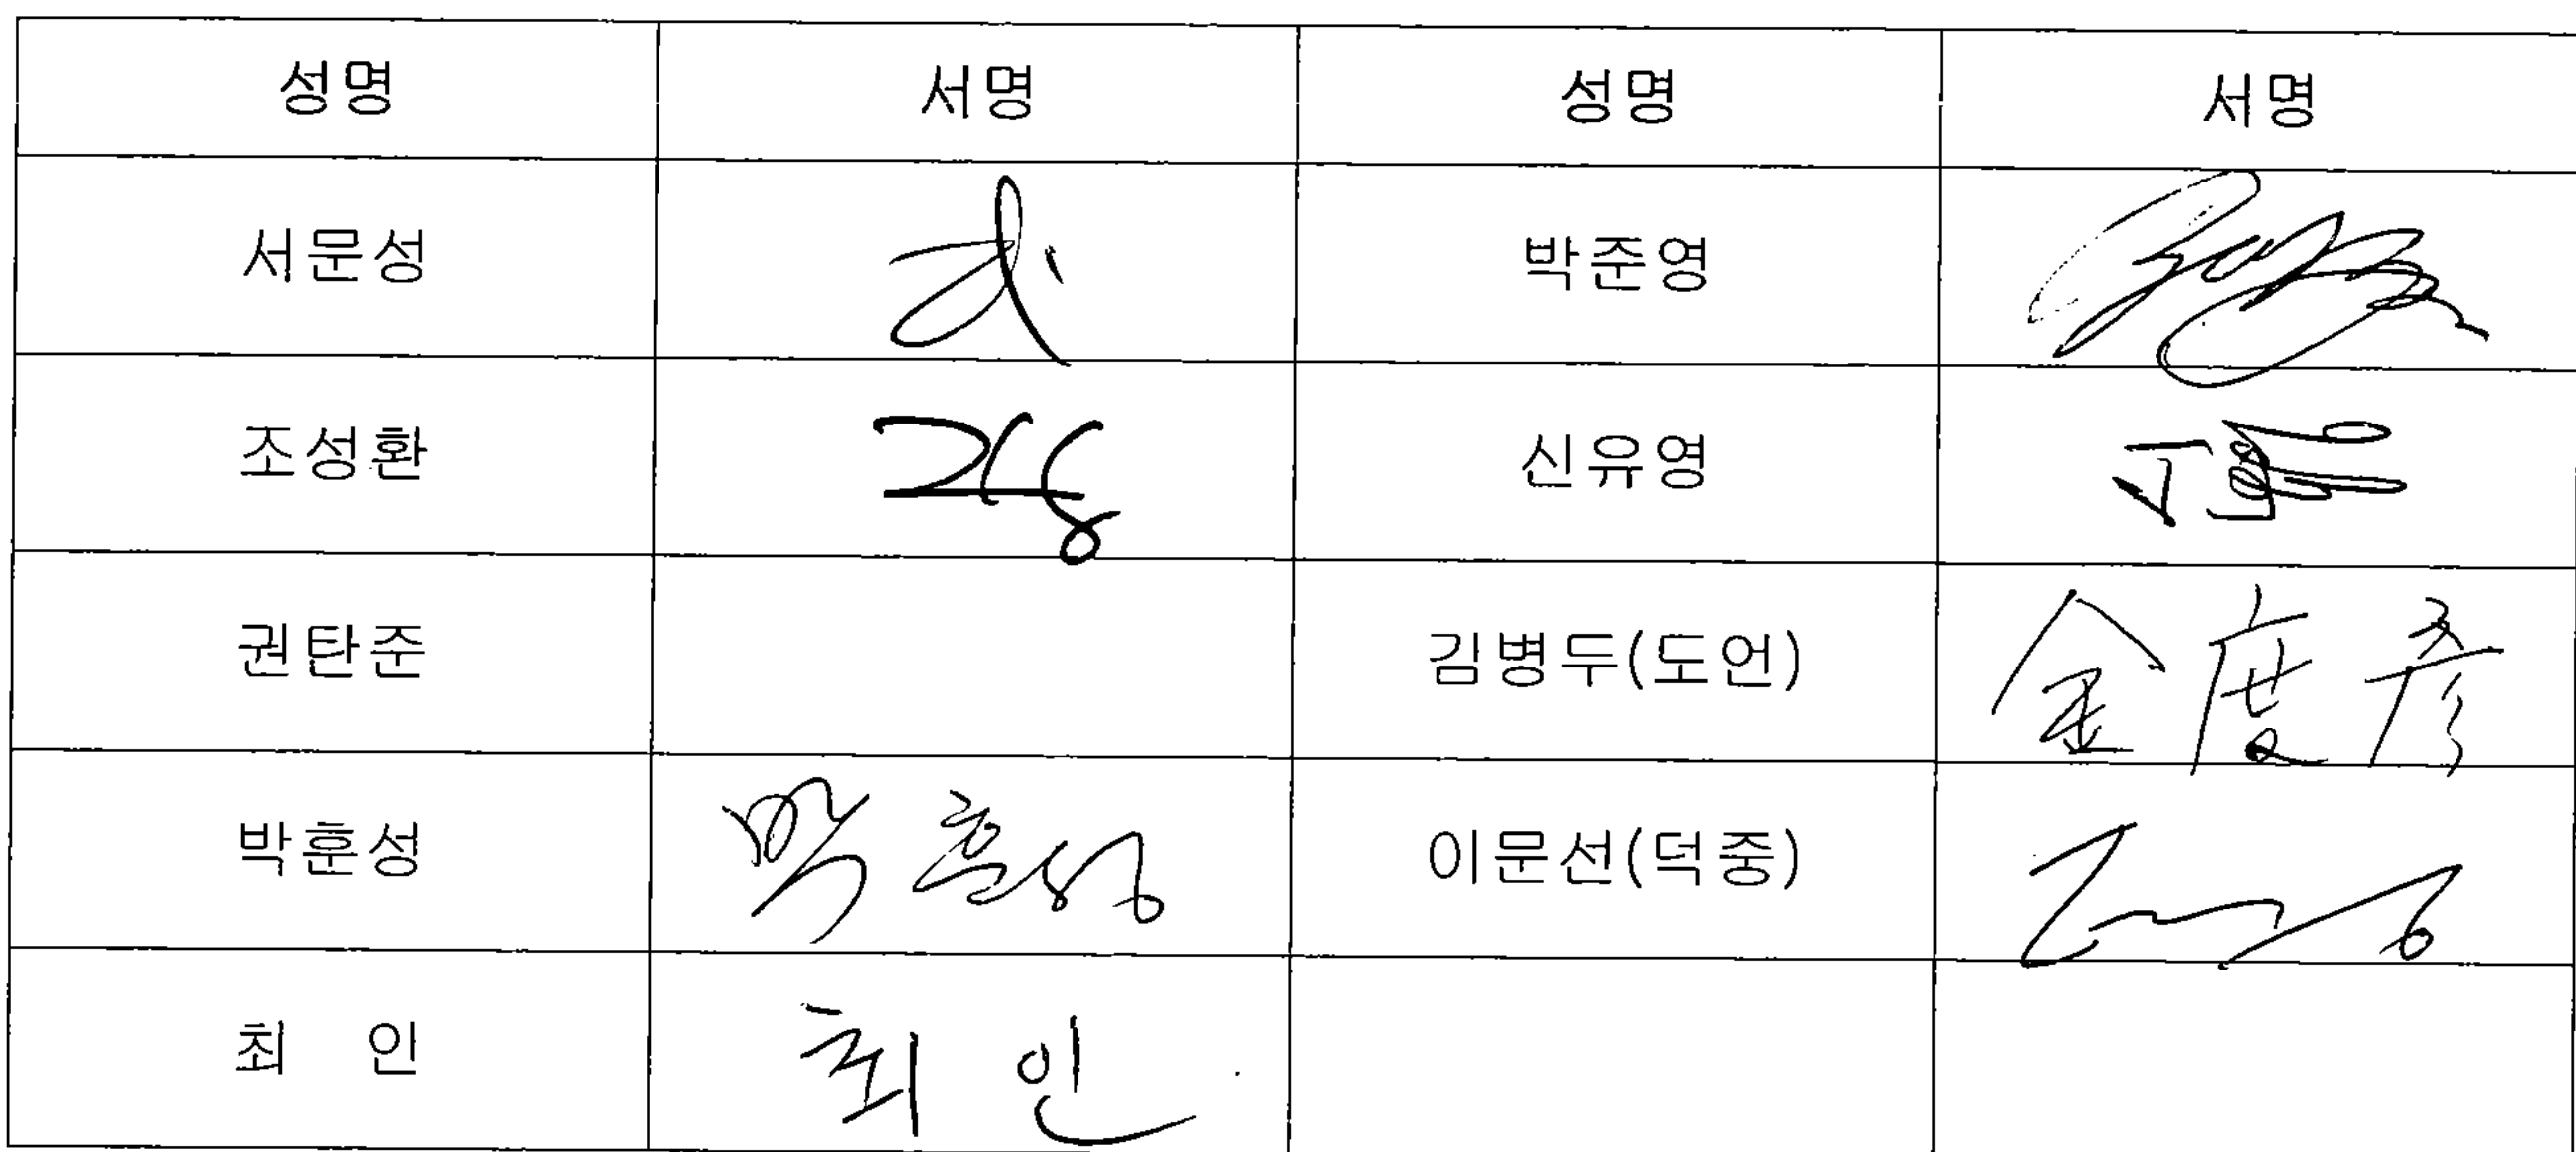 성명 서명 성명 서명
서문성 박준영
조성환 신유영
권탄준 김병두(도언) 金度彦
박훈성 박훈성 이문선(덕중)
최 인 최 인